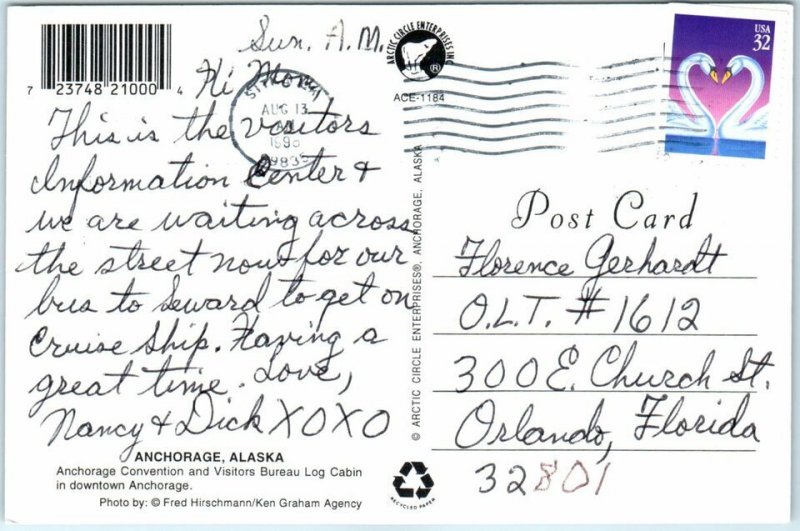 Sun. A.M.
Hi Mom,
This is the visitors
Information Center +
we are waiting across
the street now for our
bus to Seward to get on
Cruise Ship. Having a
great time. Love,
Nancy + Dick XOXO
ANCHORAGE, ALASKA
Anchorage Convention and Visitors Bureau Log Cabin
in downtown Anchorage.
Photo by: © Fred Hirschmann/Ken Graham Agency
7 23748 21000 4
AUG 13
ARCTIC CIRCLE ENTERPRISES INC
®
ACE-1184
© ARCTIC CIRCLE ENTERPRISES®, ANCHORAGE, ALASKA
RECYCLED PAPER
USA
32
Post Card
Florence Gerhardt
O.L.T. #1612
300 E. Church St.
Orlando, Florida
32801